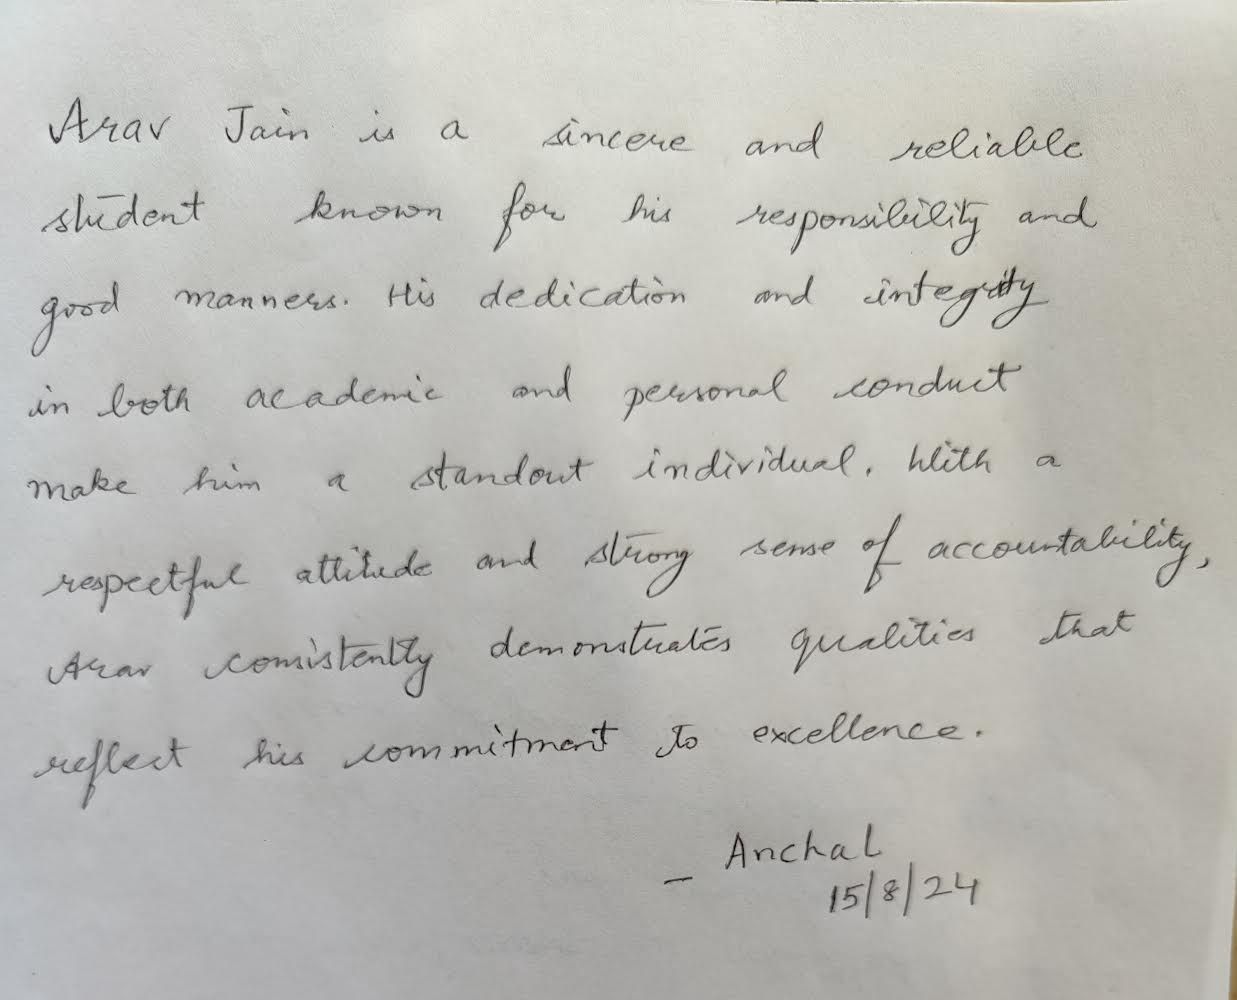 Arav Jain is a sincere and reliable
student known for his responsibility and
good manners. His dedication and integrity
in both academic and personal conduct
make him a standout individual. With a
respectful attitude and strong sense of accountability,
Arav consistently demonstrates qualities that
reflect his commitment to excellence.
– Anchal
15/8/24